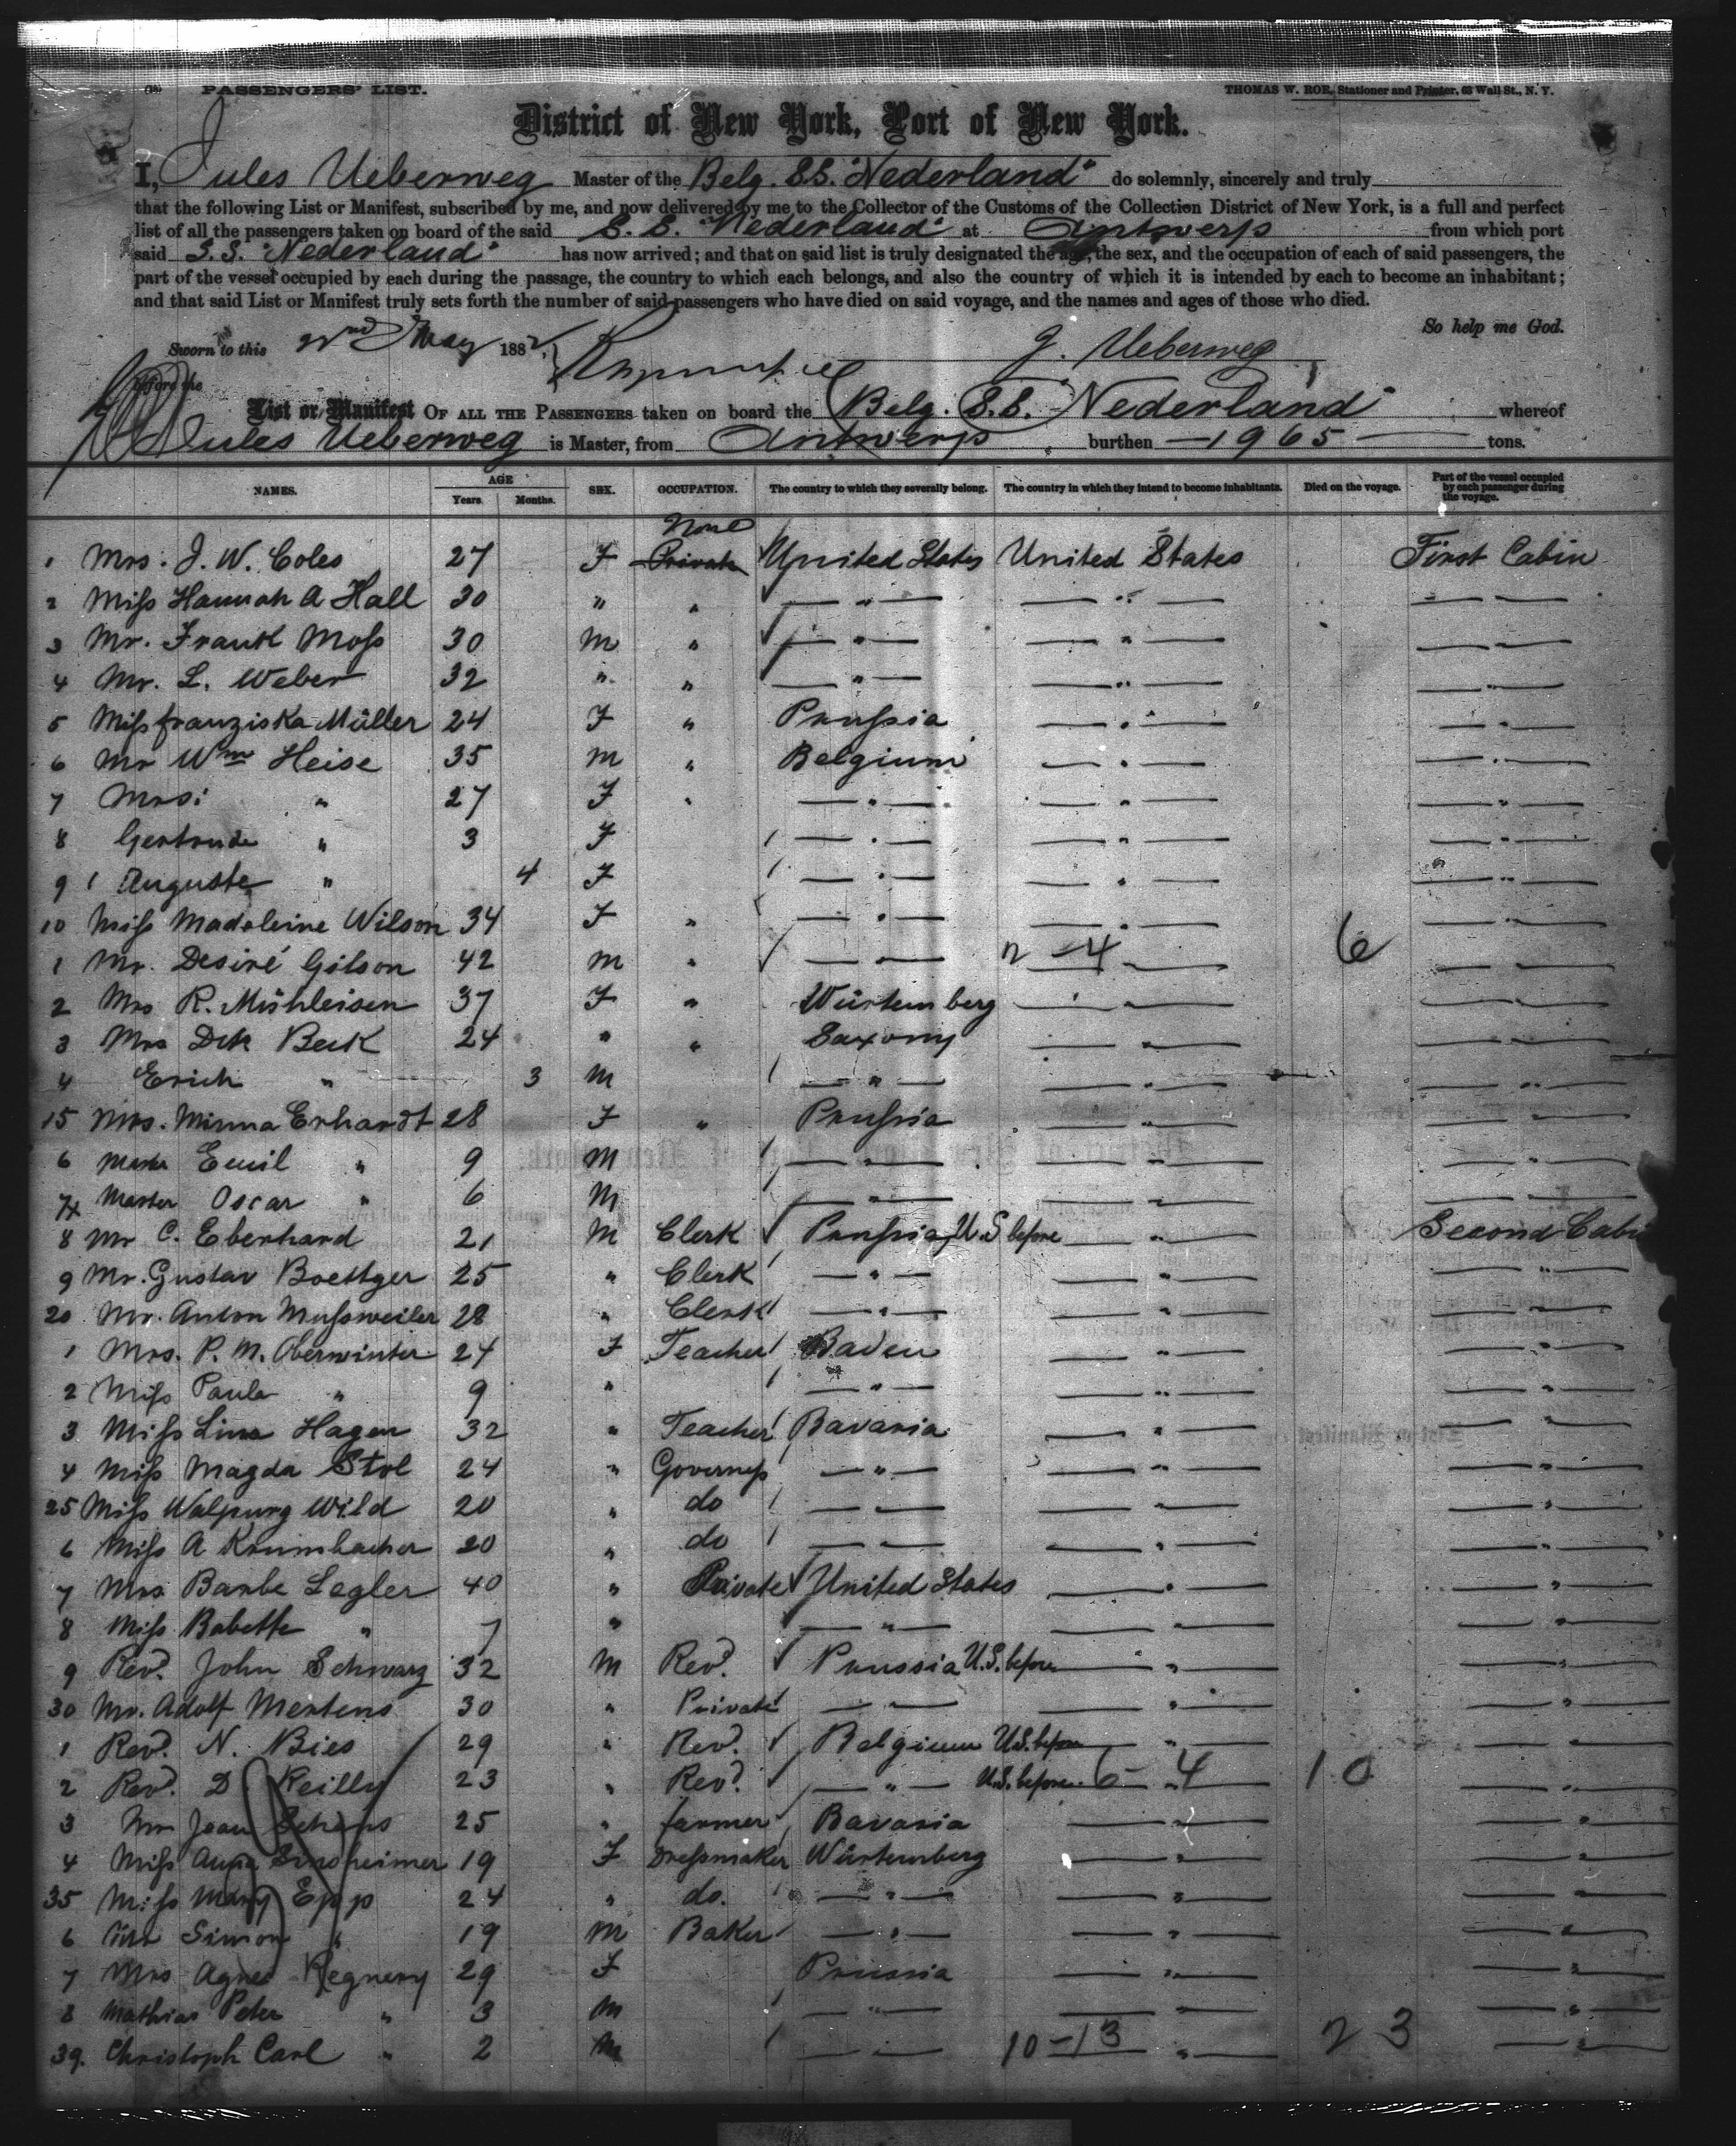 (1a) PASSENGERS' LIST. THOMAS W. ROE, Stationer and Printer, 63 Wall St., N. Y.
District of New York, Port of New York.
I, Jules Ueberweg Master of the Belg. SS. "Nederland" do solemnly, sincerely and truly
that the following List or Manifest, subscribed by me, and now delivered by me to the Collector of the Customs of the Collection District of New York, is a full and perfect
list of all the passengers taken on board of the said S. S. "Nederland" at Antwerp from which port
said S.S. "Nederland" has now arrived; and that on said list is truly designated the age, the sex, and the occupation of each of said passengers, the
part of the vessel occupied by each during the passage, the country to which each belongs, and also the country of which it is intended by each to become an inhabitant;
and that said List or Manifest truly sets forth the number of said passengers who have died on said voyage, and the names and ages of those who died.
So help me God.
Sworn to this 22nd May 1882, J. Ueberweg
before me
List or Manifest OF ALL THE PASSENGERS taken on board the Belg. S.S. Nederland" whereof
Jules Ueberweg is Master, from Antwerp burthen — 1965 — tons.
NAMES. AGE Years. Months. SEX. OCCUPATION. The country to which they severally belong. The country in which they intend to become inhabitants. Died on the voyage. Part of the vessel occupied by each passenger during the voyage.
None
1 Mrs. J. W. Coles 27 F Private United States United States First Cabin
2 Miss Hannah A Hall 30 " " — " — — " — — " —
3 Mr. Frank Moss 30 M " — " — — " — — " —
4 Mr. L. Weber 32 " " — " — — " — — " —
5 Miss Franziska Müller 24 F " Prussia — " — — " —
6 Mr Wm Heise 35 M " Belgium — " — — " —
7 Mrs. " 27 F " — " — — " — — " —
8 Gertrude " 3 F — " — — " — — " —
9 Auguste " 4 F — " — — " — — " —
10 Miss Madeleine Wilson 34 F " — " — — " — — " —
1 Mr. Desiré Gilson 42 M " — " — 2 - 4 — " — 6 — " —
2 Mrs R. Mühleisen 37 F " Würtemberg — " — — " —
3 Mrs Dck Beck 24 " " Saxony — " — — " —
4 Erich " 3 M — " — — " — — " —
15 Mrs. Minna Erhardt 28 F " Prussia — " — — " —
6 Master Emil " 9 M — " — — " — — " —
7 Master Oscar " 6 M — " — — " — — " —
8 Mr C. Eberhard 21 M Clerk Prussia, U.S before — " — Second Cabin
9 Mr. Gustav Boettger 25 " Clerk — " — — " — — " —
20 Mr. Anton Mussweiler 28 " Clerk — " — — " — — " —
1 Mrs. P. M. Oberwinter 24 F Teacher Baden — " — — " —
2 Miss Paula " 9 " — " — — " — — " —
3 Miss Lina Hagen 32 " Teacher Bavaria — " — — " —
4 Miss Magda Stol 24 " Governess — " — — " — — " —
25 Miss Walpurg Wild 20 " do — " — — " — — " —
6 Miss A Krumbacher 20 " do — " — — " — — " —
7 Mrs Barbe Legler 40 " Private United States — " — — " —
8 Miss Babette " 7 " — " — — " — — " —
9 Revd. John Schwarz 32 M Revd. Prussia U.S. before — " — — " —
30 Mr. Adolf Mertens 30 " Private — " — — " — — " —
1 Revd. N. Bies 29 " Revd. Belgium U.S. before — " — — " —
2 Revd. D Reilly 23 " Revd. — " — U.S. before 6 - 4 — 10 — " —
3 Mr Jean 25 " farmer Bavaria — " — — " —
4 Miss Anna Sinsheimer 19 F Dressmaker Würtemberg — " — — " —
35 Miss Mary Epp 24 " do. — " — — " — — " —
6 Mr Simon " 19 M Baker — " — — " — — " —
7 Mrs Agnes Regnery 29 F Prussia — " — — " —
8 Mathias Peter " 3 M — " — — " — — " —
39. Christoph Carl " 2 M — " — 10 - 13 — " — 23 — " —